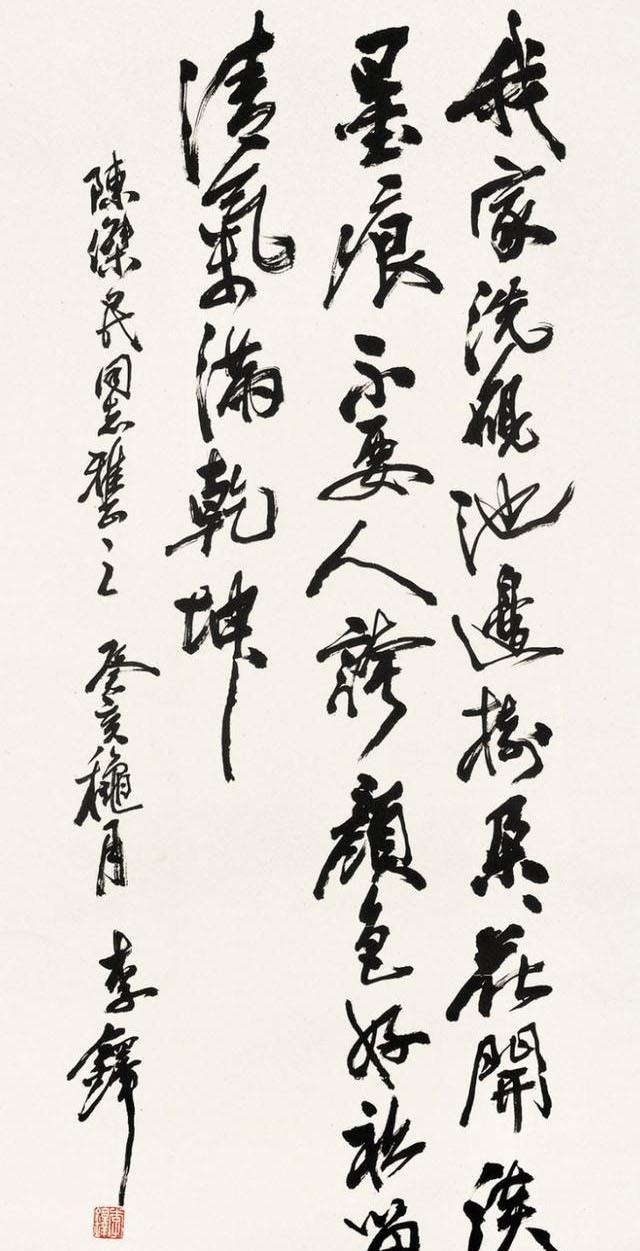 我家洗硯池邊樹朵朵花開淡
墨痕不要人誇顏色好祇留
清氣滿乾坤
陳傑民同志雅囑之 癸亥龝月 李鐸